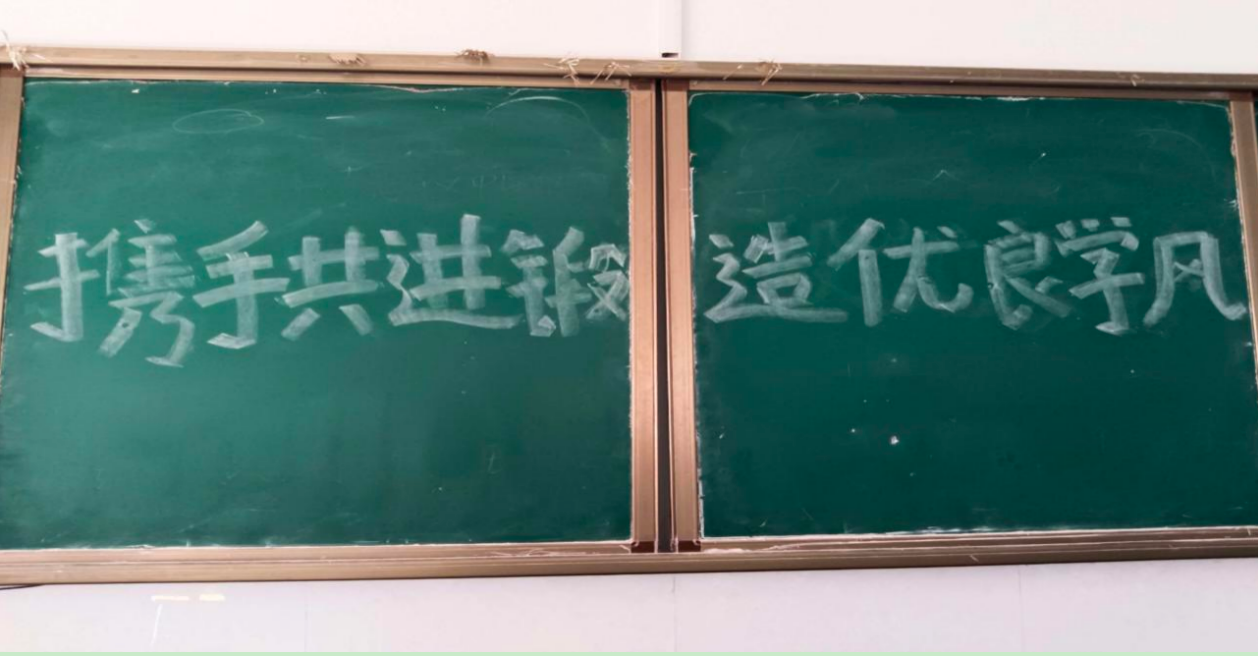 携手共进锻造优良学风